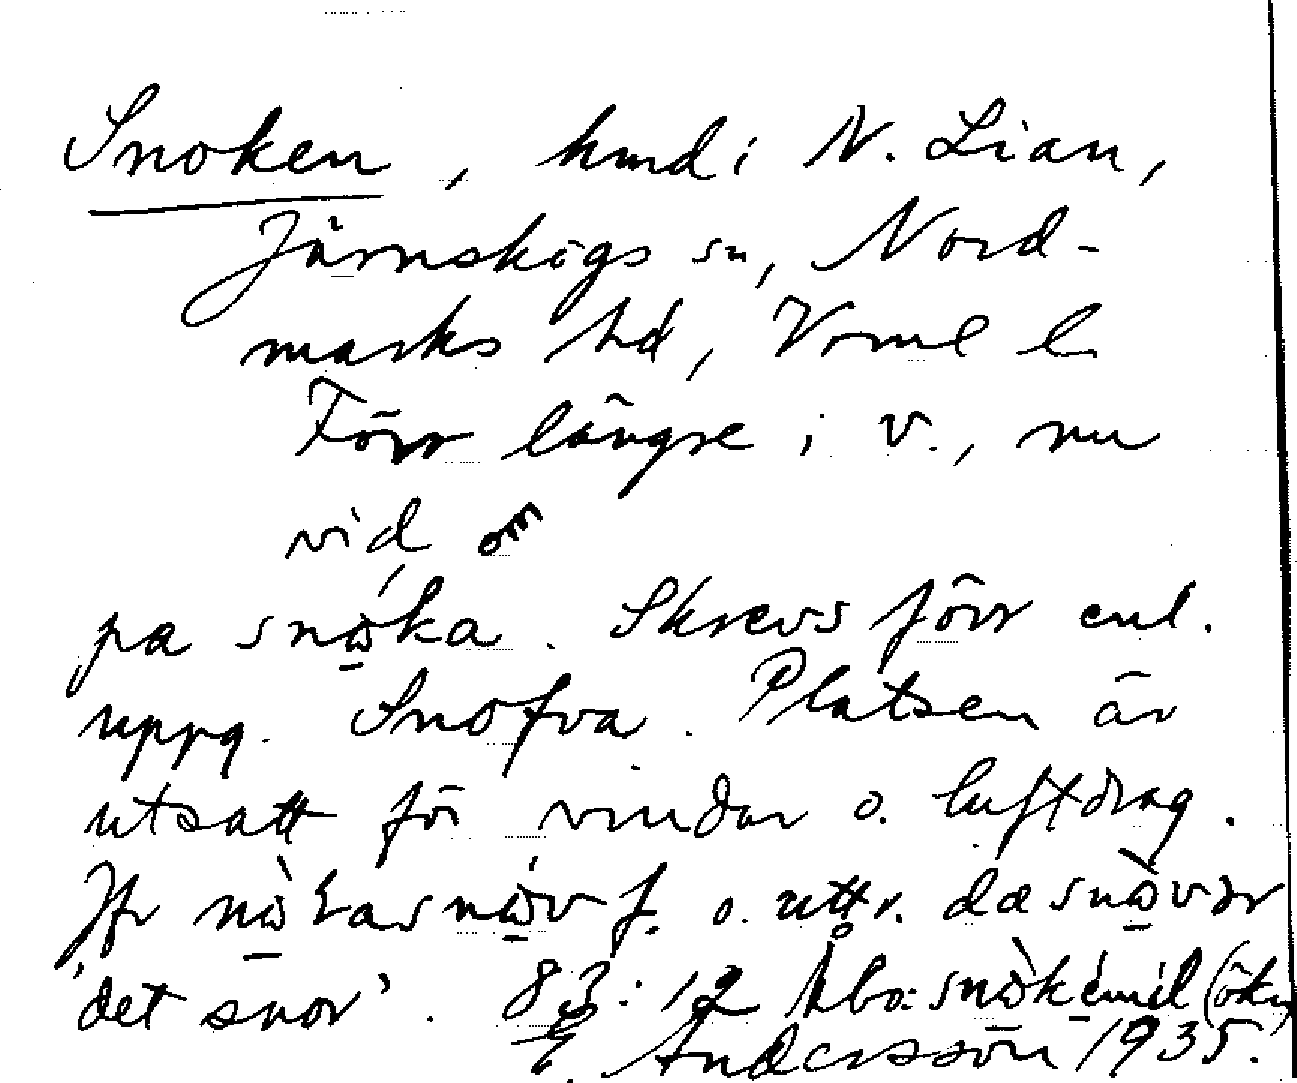 Snoken, hmd i N. Lian,
Järnskogs sn, Nord-
marks hd, Vrml l.
Förr längre i v., nu
vid
pa snω̱ka. Skrevs förr enl.
uppg. Snofva. Platsen är
utsatt för vindar o. luftdrag.
Jfr f. o. uttr. dæ snω̱vər
'det snor'. 83:12 Åbo: snω̱kemil
E. Andersson 1935.